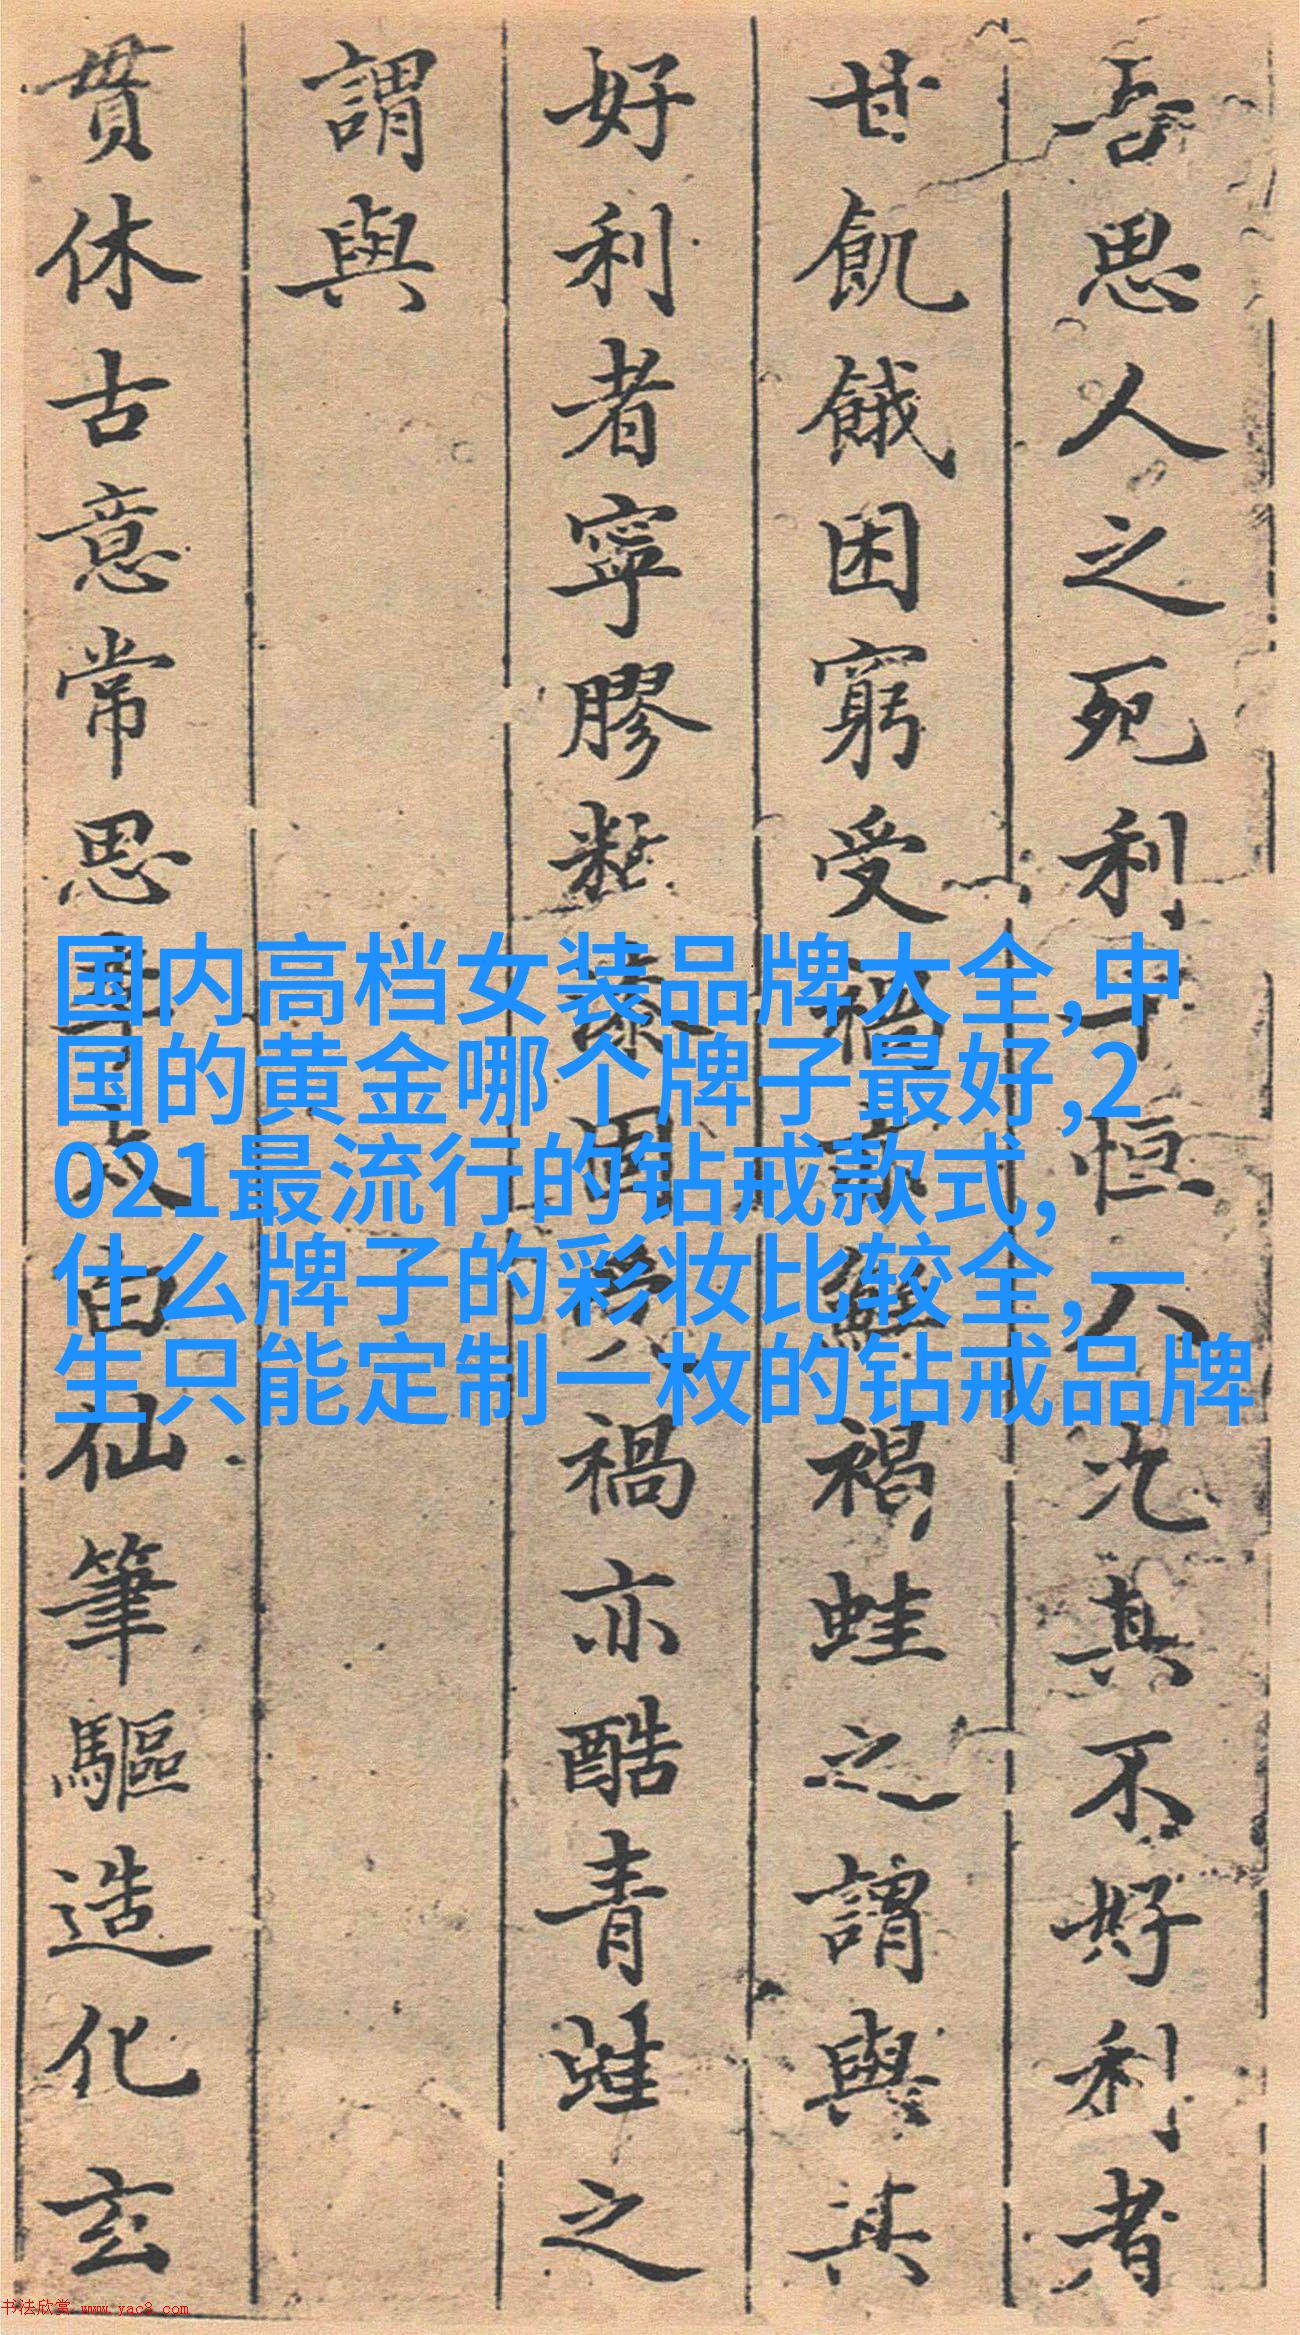 吾思人之死利十恒八九其不好利者
甘飢餓困窮受禍
褐蛙之謂與其
好利者寧膠
禍亦酷青蛙之
謂與
貫休古意常思
仙筆驅造化玄
国内高档女装品牌大全,中
国的黄金哪个牌子最好,2
021最流行的钻戒款式,
什么牌子的彩妆比较全,一
生只能定制一枚的钻戒品牌
书法欣赏 www.yac8.com